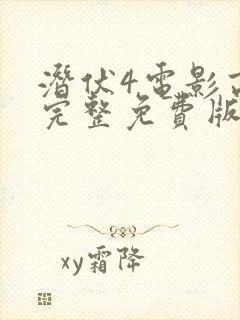 潛伏4電影
完整免費版
xy霜降